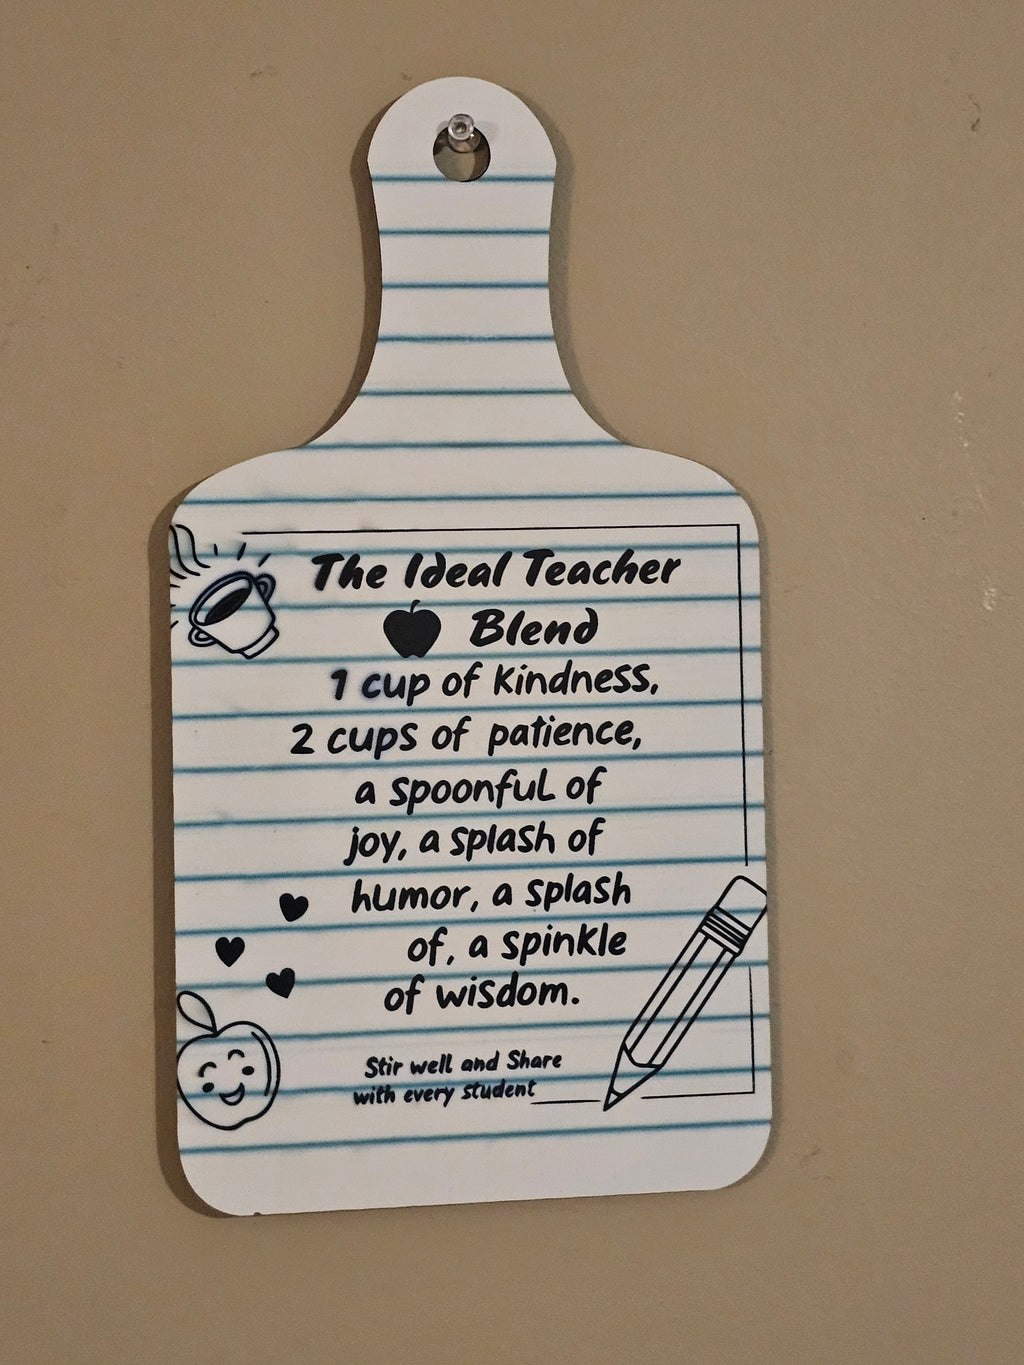 The Ideal Teacher
Blend
1 cup of kindness,
2 cups of patience,
a spoonful of
joy, a splash of
humor, a splash
of, a spinkle
of wisdom.
Stir well and Share
with every student